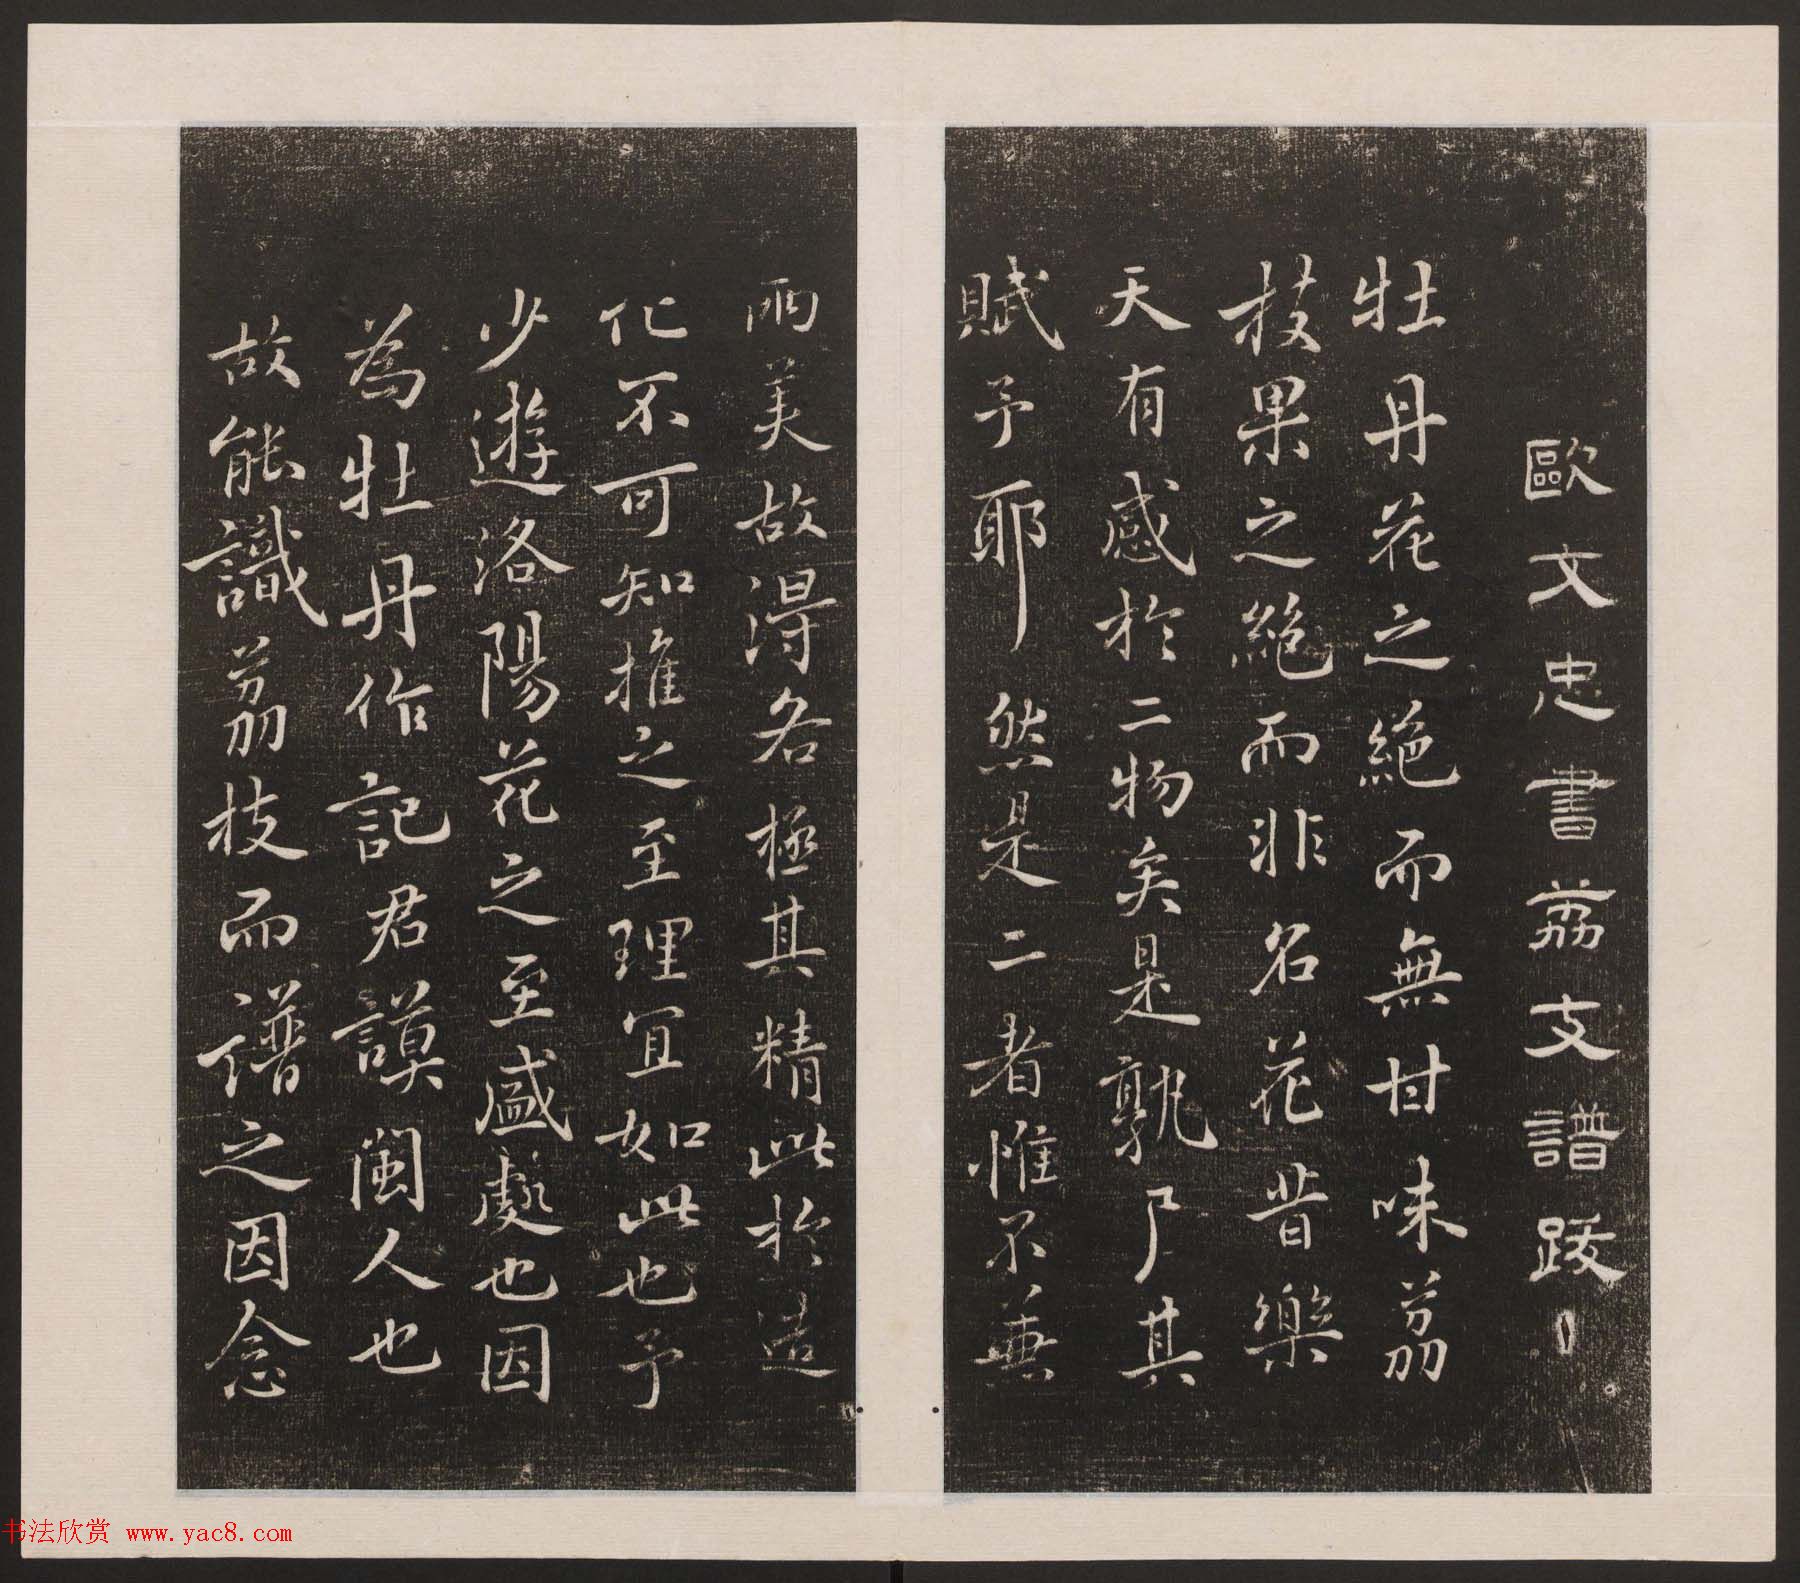 歐文忠書荔支譜跋
牡丹花之絕而無甘味荔
枝果之絕而非名花昔樂
天有感於二物矣是孰尸其
賦予耶然是二者惟不兼
兩美故得各極其精此於造
化不可知推之至理宜如此也予
少遊洛陽花之至盛處也因
為牡丹作記君謨閩人也
故能識荔枝而譜之因念
书法欣赏 www.yac8.com